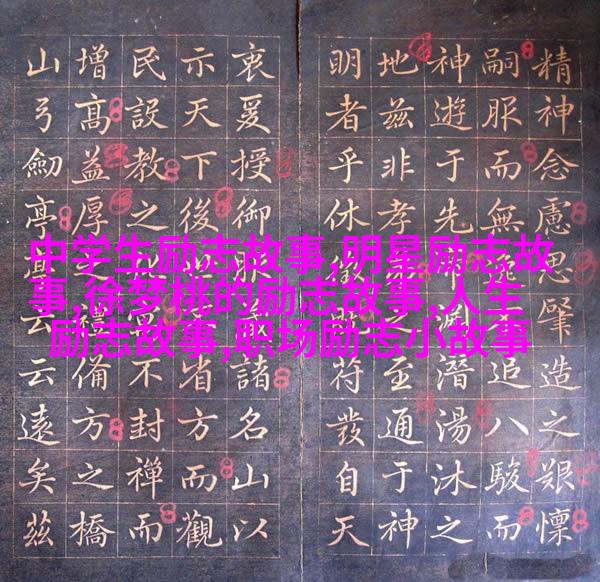 精神念慮思肇造之艱懍
嗣服而無逸追八駿而
神遊于先潛湯沐之
地茲非孝之至通于神
明者乎休符發自天
衷爰授御諸名山以
示天下後省方而觀
民設教之不封禪而
增高益厚禮備方之橋
山弓劍亭云云遠矣茲
中学生励志故事,明星励志故
事,徐梦桃的励志故事,人生
励志故事,职场励志小故事